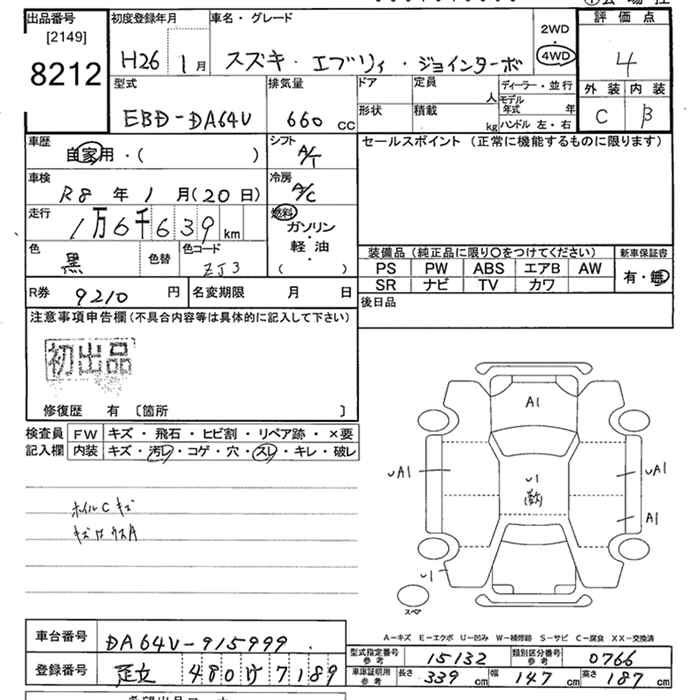 出品番号
[2149]
8212
初度登録年月
H26 1月
車名・グレード
スズキ・エブリィ・ジョインターボ
2WD
4WD
評価点
4
外装 内装
C B
型式
EBD-DA64V
排気量
660 cc
ドア
形状
定員 人
積載 kg
ディーラー・並行
モデル年式 年
ハンドル 左・右
車歴
自家用・( )
シフト
A/T
車検
R8年1月(20日)
冷房
A/C
走行
1万6千639km
燃料
ガソリン・軽油
( )
色
黒
色替
色コード
ZJ3
R券 9210円
名変期限 月 日
セールスポイント(正常に機能するものに限ります)
装備品(純正品に限り○をつけてください)
PS PW ABS エアB AW
SR ナビ TV カワ
新車保証書
有・無
後日品
注意事項申告欄(不具合内容等は具体的に記入して下さい)
初出品
修復歴 有〔箇所 〕
検査員記入欄
FW キズ・飛石・ヒビ割・リペア跡・×要
内装 キズ・汚レ・コゲ・穴・スレ・キレ・破レ
ホイルCキズ
A1
UA1
U1
UA1
A1
U1
スペア
A-キズ E-エクボ U-凹み W-補修跡 S-サビ C-腐食 XX-交換済
車台番号 DA64V-915999
登録番号 足立 480 け 7189
型式指定番号 参考 15132
類別区分番号 参考 0766
車庫証明用 参考 長さ 339cm 幅 147cm 高さ 187cm